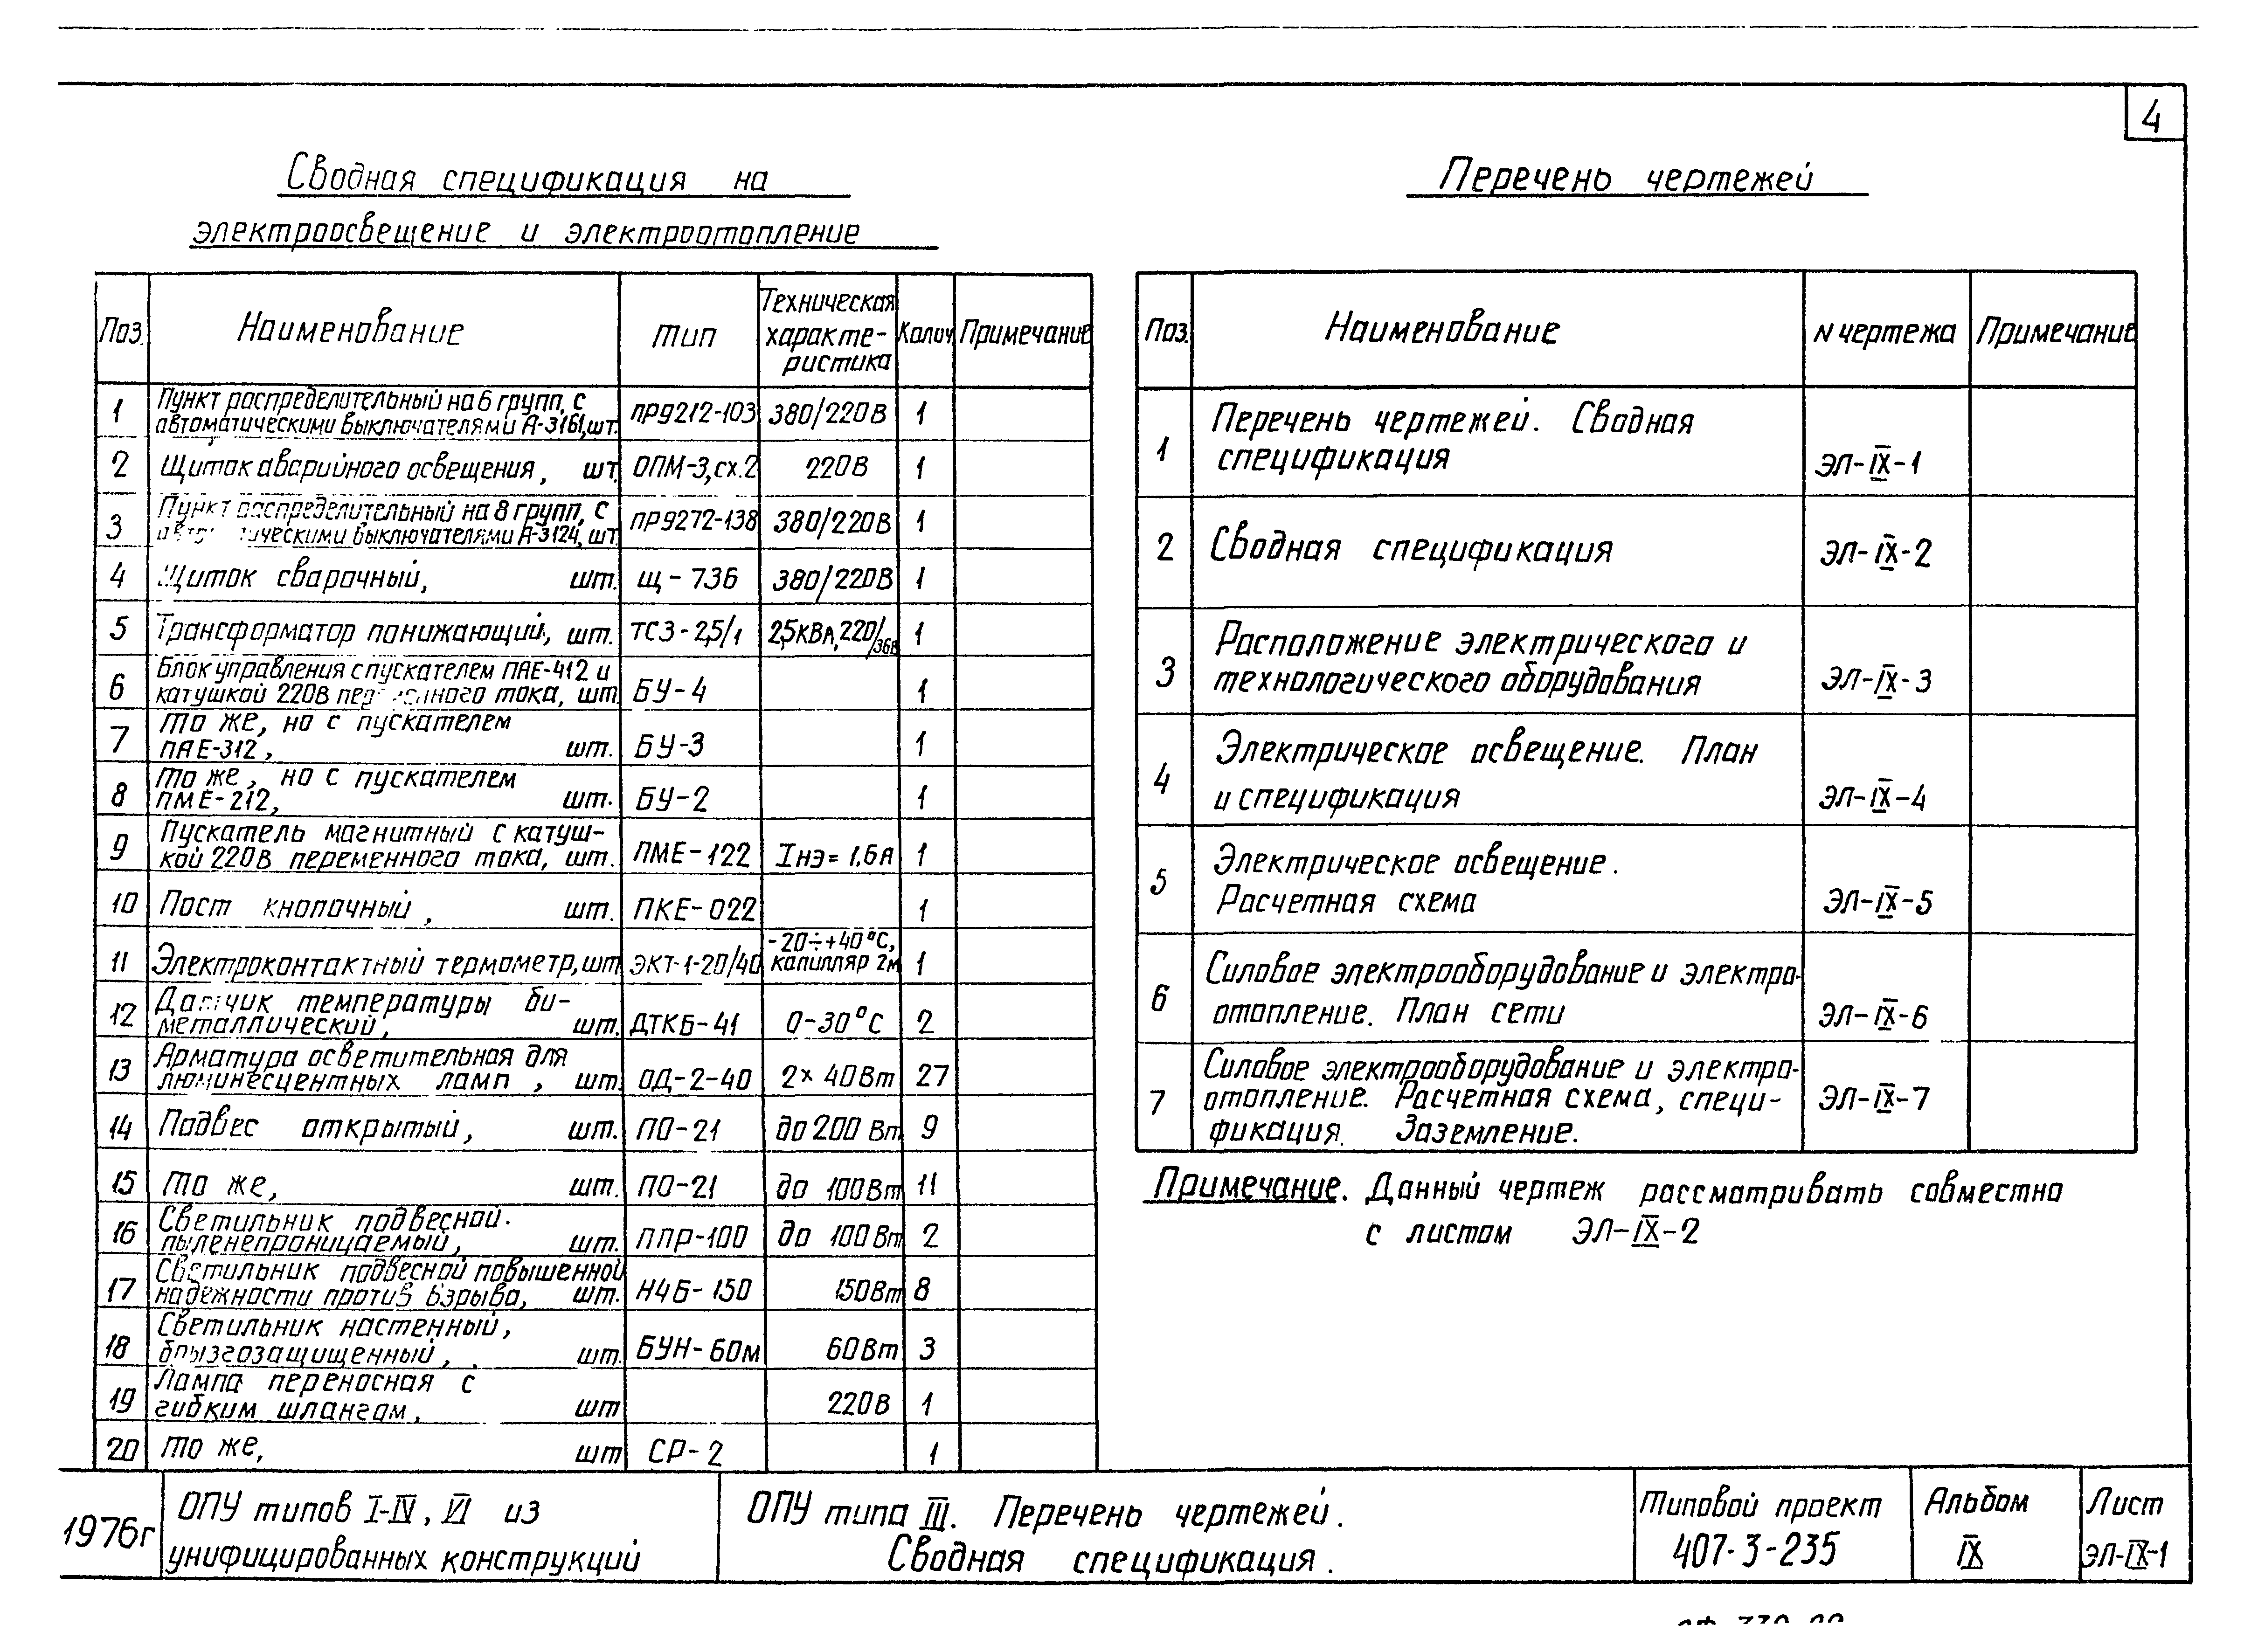 4
Сводная спецификация на
электроосвещение и электроотопление
Поз. Наименование Тип Техническая характе-ристика Колич Примечание
1 Пункт распределительный на 6 групп, с
автоматическими выключателями А-3161, шт. ПР9212-103 380/220В 1
2 Щиток аварийного освещения, шт. ОПМ-3, сх.2 220В 1
3 Пункт распределительный на 8 групп, с
автоматическими выключателями А-3124, шт. ПР9272-138 380/220В 1
4 Щиток сварочный, шт. Щ-736 380/220В 1
5 Трансформатор понижающий, шт. ТСЗ-2,5/1 2,5кВА, 220/36В 1
6 Блок управления с пускателем ПАЕ-412 и
катушкой 220В переменного тока, шт. БУ-4 1
7 То же, но с пускателем
ПАЕ-312, шт. БУ-3 1
8 То же, но с пускателем
ПМЕ-212, шт. БУ-2 1
9 Пускатель магнитный с катуш-
кой 220В переменного тока, шт. ПМЕ-122 Iнэ = 1.6А 1
10 Пост кнопочный, шт. ПКЕ-022 1
11 Электроконтактный термометр, шт ЭКТ-1-20/40 -20÷+40°С, капилляр 2м 1
12 Датчик температуры би-
металлический, шт. ДТКБ-41 0-30°С 2
13 Арматура осветительная для
люминесцентных ламп, шт. ОД-2-40 2×40Вт 27
14 Подвес открытый, шт. ПО-21 до 200 Вт 9
15 То же, шт. ПО-21 до 100Вт 11
16 Светильник подвесной.
пыленепроницаемый, шт. ППР-100 до 100Вт 2
17 Светильник подвесной повышенной
надежности против взрыва, шт. Н4Б-150 150Вт 8
18 Светильник настенный,
брызгозащищенный, шт. БУН-60м 60Вт 3
19 Лампа переносная с
гибким шлангом, шт 220В 1
20 То же, шт СР-2 1
Перечень чертежей
Поз. Наименование N чертежа Примечание
1 Перечень чертежей. Сводная
спецификация ЭЛ-IX-1
2 Сводная спецификация ЭЛ-IX-2
3 Расположение электрического и
технологического оборудования ЭЛ-IX-3
4 Электрическое освещение. План
и спецификация ЭЛ-IX-4
5 Электрическое освещение.
Расчетная схема ЭЛ-IX-5
6 Силовое электрооборудование и электро-
отопление. План сети ЭЛ-IX-6
7 Силовое электрооборудование и электро-
отопление. Расчетная схема, специ-
фикация. Заземление. ЭЛ-IX-7
Примечание. Данный чертеж рассматривать совместно
с листом ЭЛ-IX-2
1976г
ОПУ типов I-IV, VI из
унифицированных конструкций
ОПУ типа III. Перечень чертежей.
Сводная спецификация.
Типовой проект
407-3-235
Альбом
IX
Лист
ЭЛ-IX-1